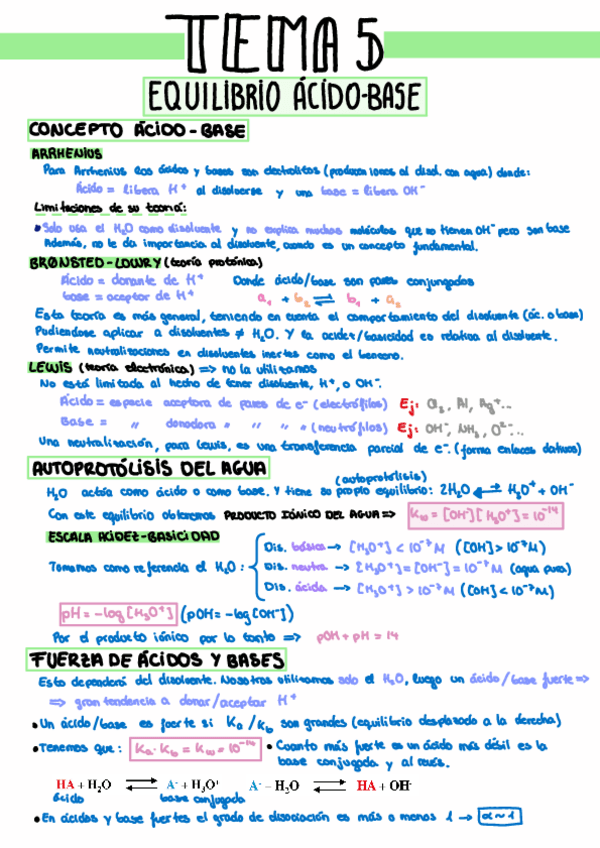 TEMA 5
EQUILIBRIO ÁCIDO-BASE
CONCEPTO ÁCIDO-BASE
ARRHENIUS
Para Arrhenius los ácidos y bases son electrolitos (producen iones al disol. con agua) donde:
Ácido = libera H⁺ al disolverse y una base = libera OH⁻
Limitaciones de su teoría:
• Solo usa el H₂O como disolvente y no explica muchas moléculas que no tienen OH⁻ pero son base
Además, no le da importancia al disolvente, cuando es un concepto fundamental.
BRØNSTED-LOWRY (teoría protónica)
Ácido = donante de H⁺ Donde ácido/base son pares conjugados
base = aceptor de H⁺ a₁ + b₂ ⇌ b₁ + a₂
Esta teoría es más general, teniendo en cuenta el comportamiento del disolvente (ác. o base)
Pudiéndose aplicar a disolventes ≠ H₂O. Y la acidez/basicidad es relativa al disolvente.
Permite neutralizaciones en disolventes inertes como el benceno.
LEWIS (teoría electrónica) ⇒ no la utilizamos
No está limitada al hecho de tener disolvente, H⁺, o OH⁻.
Ácido = especie aceptora de pares de e⁻ (electrófilos) Ej: Al, Ag⁺...
Base = " donadora " " " " (neutrófilos) Ej: OH⁻, NH₃, O²⁻...
Una neutralización, para Lewis, es una transferencia parcial de e⁻. (forma enlaces dativos)
AUTOPROTÓLISIS DEL AGUA
(autoprotólisis)
H₂O actúa como ácido o como base. Y tiene su propio equilibrio: 2H₂O ⇌ H₃O⁺ + OH⁻
Con este equilibrio obtenemos PRODUCTO IÓNICO DEL AGUA ⇒ Kw = [OH⁻][H₃O⁺] = 10⁻¹⁴
ESCALA ACIDEZ-BASICIDAD
Dis. básica → [H₃O⁺] < 10⁻⁷ M ([OH] > 10⁻⁷ M)
Tomamos como referencia el H₂O: Dis. neutra → [H₃O⁺] = [OH⁻] = 10⁻⁷ M (agua pura)
Dis. ácida → [H₃O⁺] > 10⁻⁷ M ([OH] < 10⁻⁷ M)
pH = -log [H₃O⁺] (pOH = -log [OH⁻])
Por el producto iónico por lo tanto ⇒ pOH + pH = 14
FUERZA DE ÁCIDOS Y BASES
Esto dependerá del disolvente. Nosotros utilizamos solo el H₂O, luego un ácido/base fuerte ⇒
⇒ gran tendencia a donar/aceptar H⁺
• Un ácido/base es fuerte si Ka/Kb son grandes (equilibrio desplazado a la derecha)
• Tenemos que: Ka·Kb = Kw = 10⁻¹⁴ • Cuanto más fuerte es un ácido más débil es la
base conjugada y al revés.
HA + H₂O ⇌ A⁻ + H₃O⁺ A⁻ + H₂O ⇌ HA + OH⁻
ácido base conjugada
• En ácidos y base fuertes el grado de disociación es más o menos 1 → α ~ 1